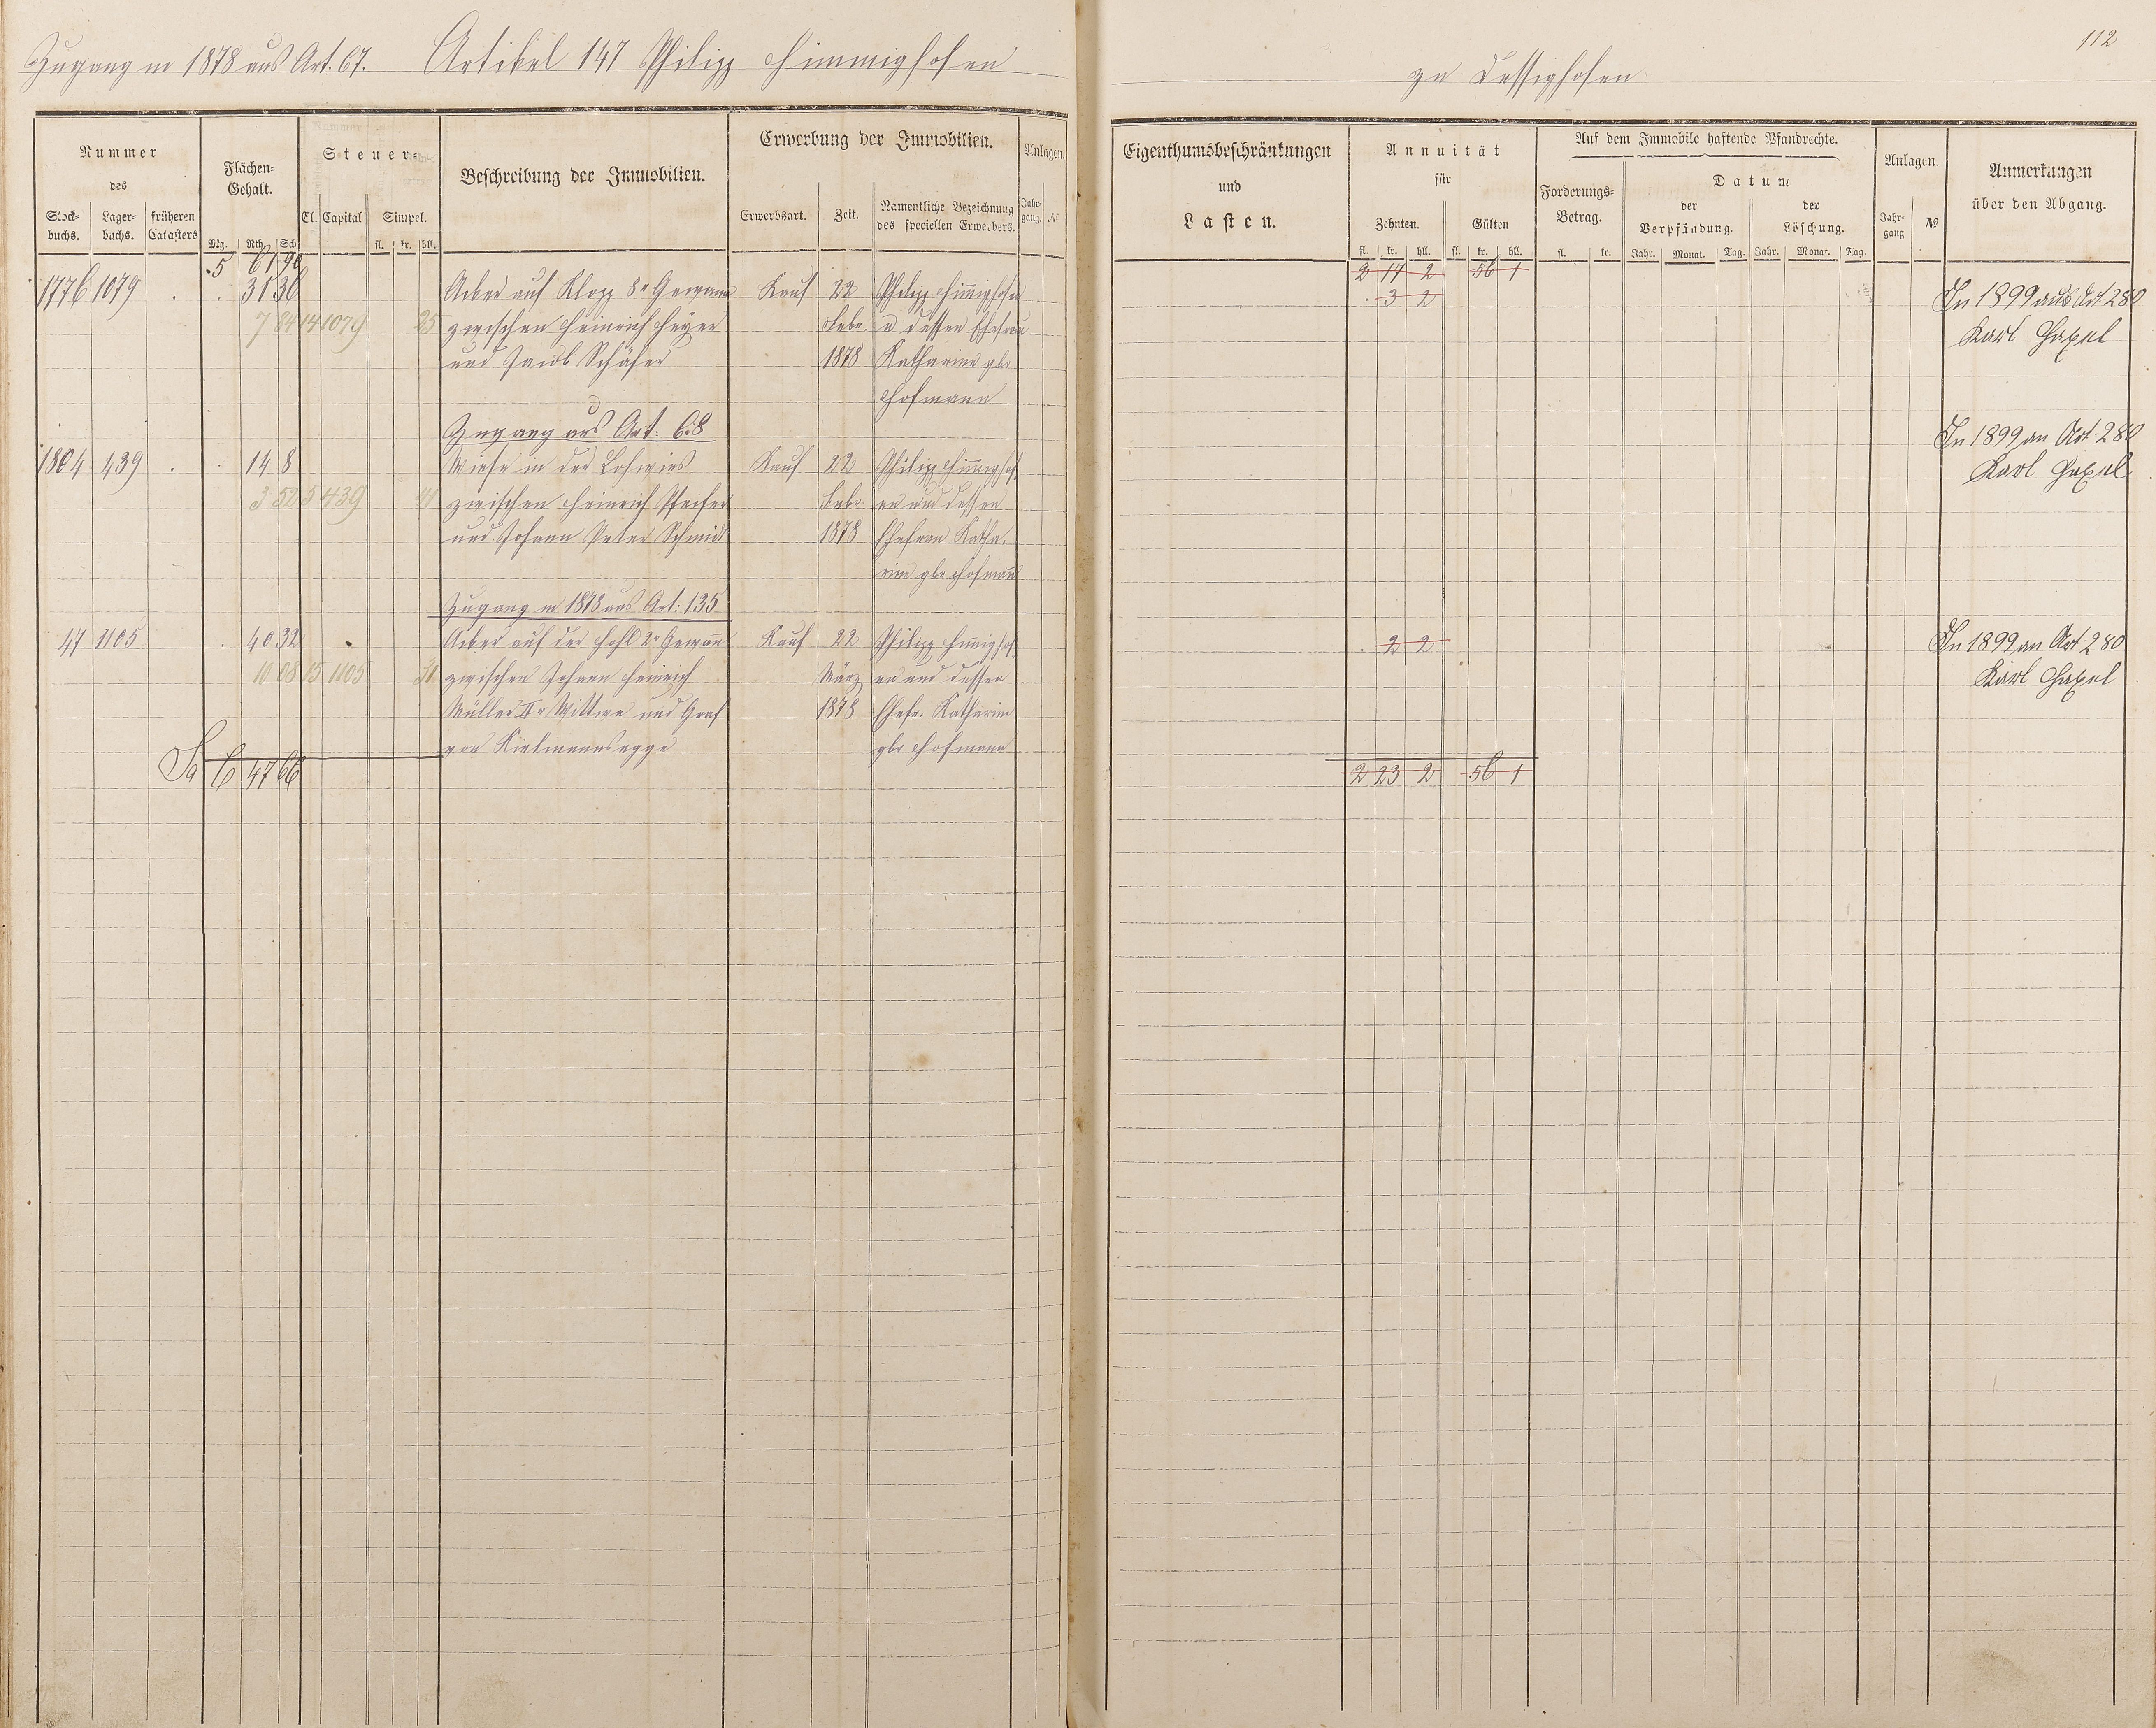 Zugang in 1878 aus Art. 67. Artikel 147 Philipp Himmighofen
zu Dessighofen
112
Nummer des
Stock-buchs. Lager-buchs. früheren Catasters
Flächen-Gehalt.
Mg. Rth. Sch.
Steuer-
Cl. Capital Simpel.
fl. kr. hll.
Beschreibung der Immobilien.
Erwerbung der Immobilien.
Erwerbsart. Zeit. Namentliche Bezeichnung des speciellen Erwerbers.
Anlagen.
Jahr-gang. №
Eigenthumsbeschränkungen
und
Lasten.
Annuität
für
Zehnten. Gülten
fl. kr. hll. fl. kr. hll.
Auf dem Immobile haftende Pfandrechte.
Forderungs-Betrag.
fl. kr.
Datum
der Verpfändung. der Löschung.
Jahr. Monat. Tag. Jahr. Monat. Tag.
Anlagen.
Jahr-gang №
Anmerkungen
über den Abgang.
5 61 90 2 17 2 56 1
1776 1079 . . 31 36 Acker auf Klopp 8r Gewann Kauf 22 Philipp Himighofen . 3 2 In 1899 aus Art 280
7 84 14 1079 25 zwischen Heinrich Heyer Febr. u dessen Ehefrau Karl Gaxel
und Jacob Schäfer 1878 Katharine gbr
Hofmann
Zugang aus Art. 68 In 1899 an Art. 280
1804 439 . . 14 8 Wiese in der Lohwies Kauf 22 Philipp Himighof Karl Gaxel
3 52 5 439 41 zwischen Heinrich Pfeifer Febr. en und dessen
und Johann Peter Schmidt 1878 Ehefrau Katha-
rine gbr Hofmann
Zugang in 1878 aus Art: 135
47 1105 . 40 32 Acker auf der Hohl 2r Gewann Kauf 22 Philipp Himighof . 2 2 In 1899 an Art 280
10 08 15 1105 31 zwischen Johann Heinrich März en und dessen Karl Gaxel
Müller IIr Wittwe und Graf 1878 Ehefr. Katharine
von Kielmannsegge gbr Hofmann
Sa 6 47 66 2 23 2 56 1